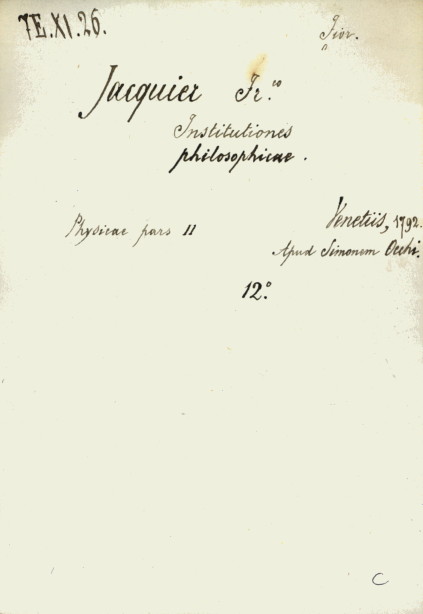 7E.XI.26.
Jacquier Fr.co
Institutiones
philosophicae.
Physicae pars II
Venetiis, 1792.
Apud Simonem Occhi.
12.°
C